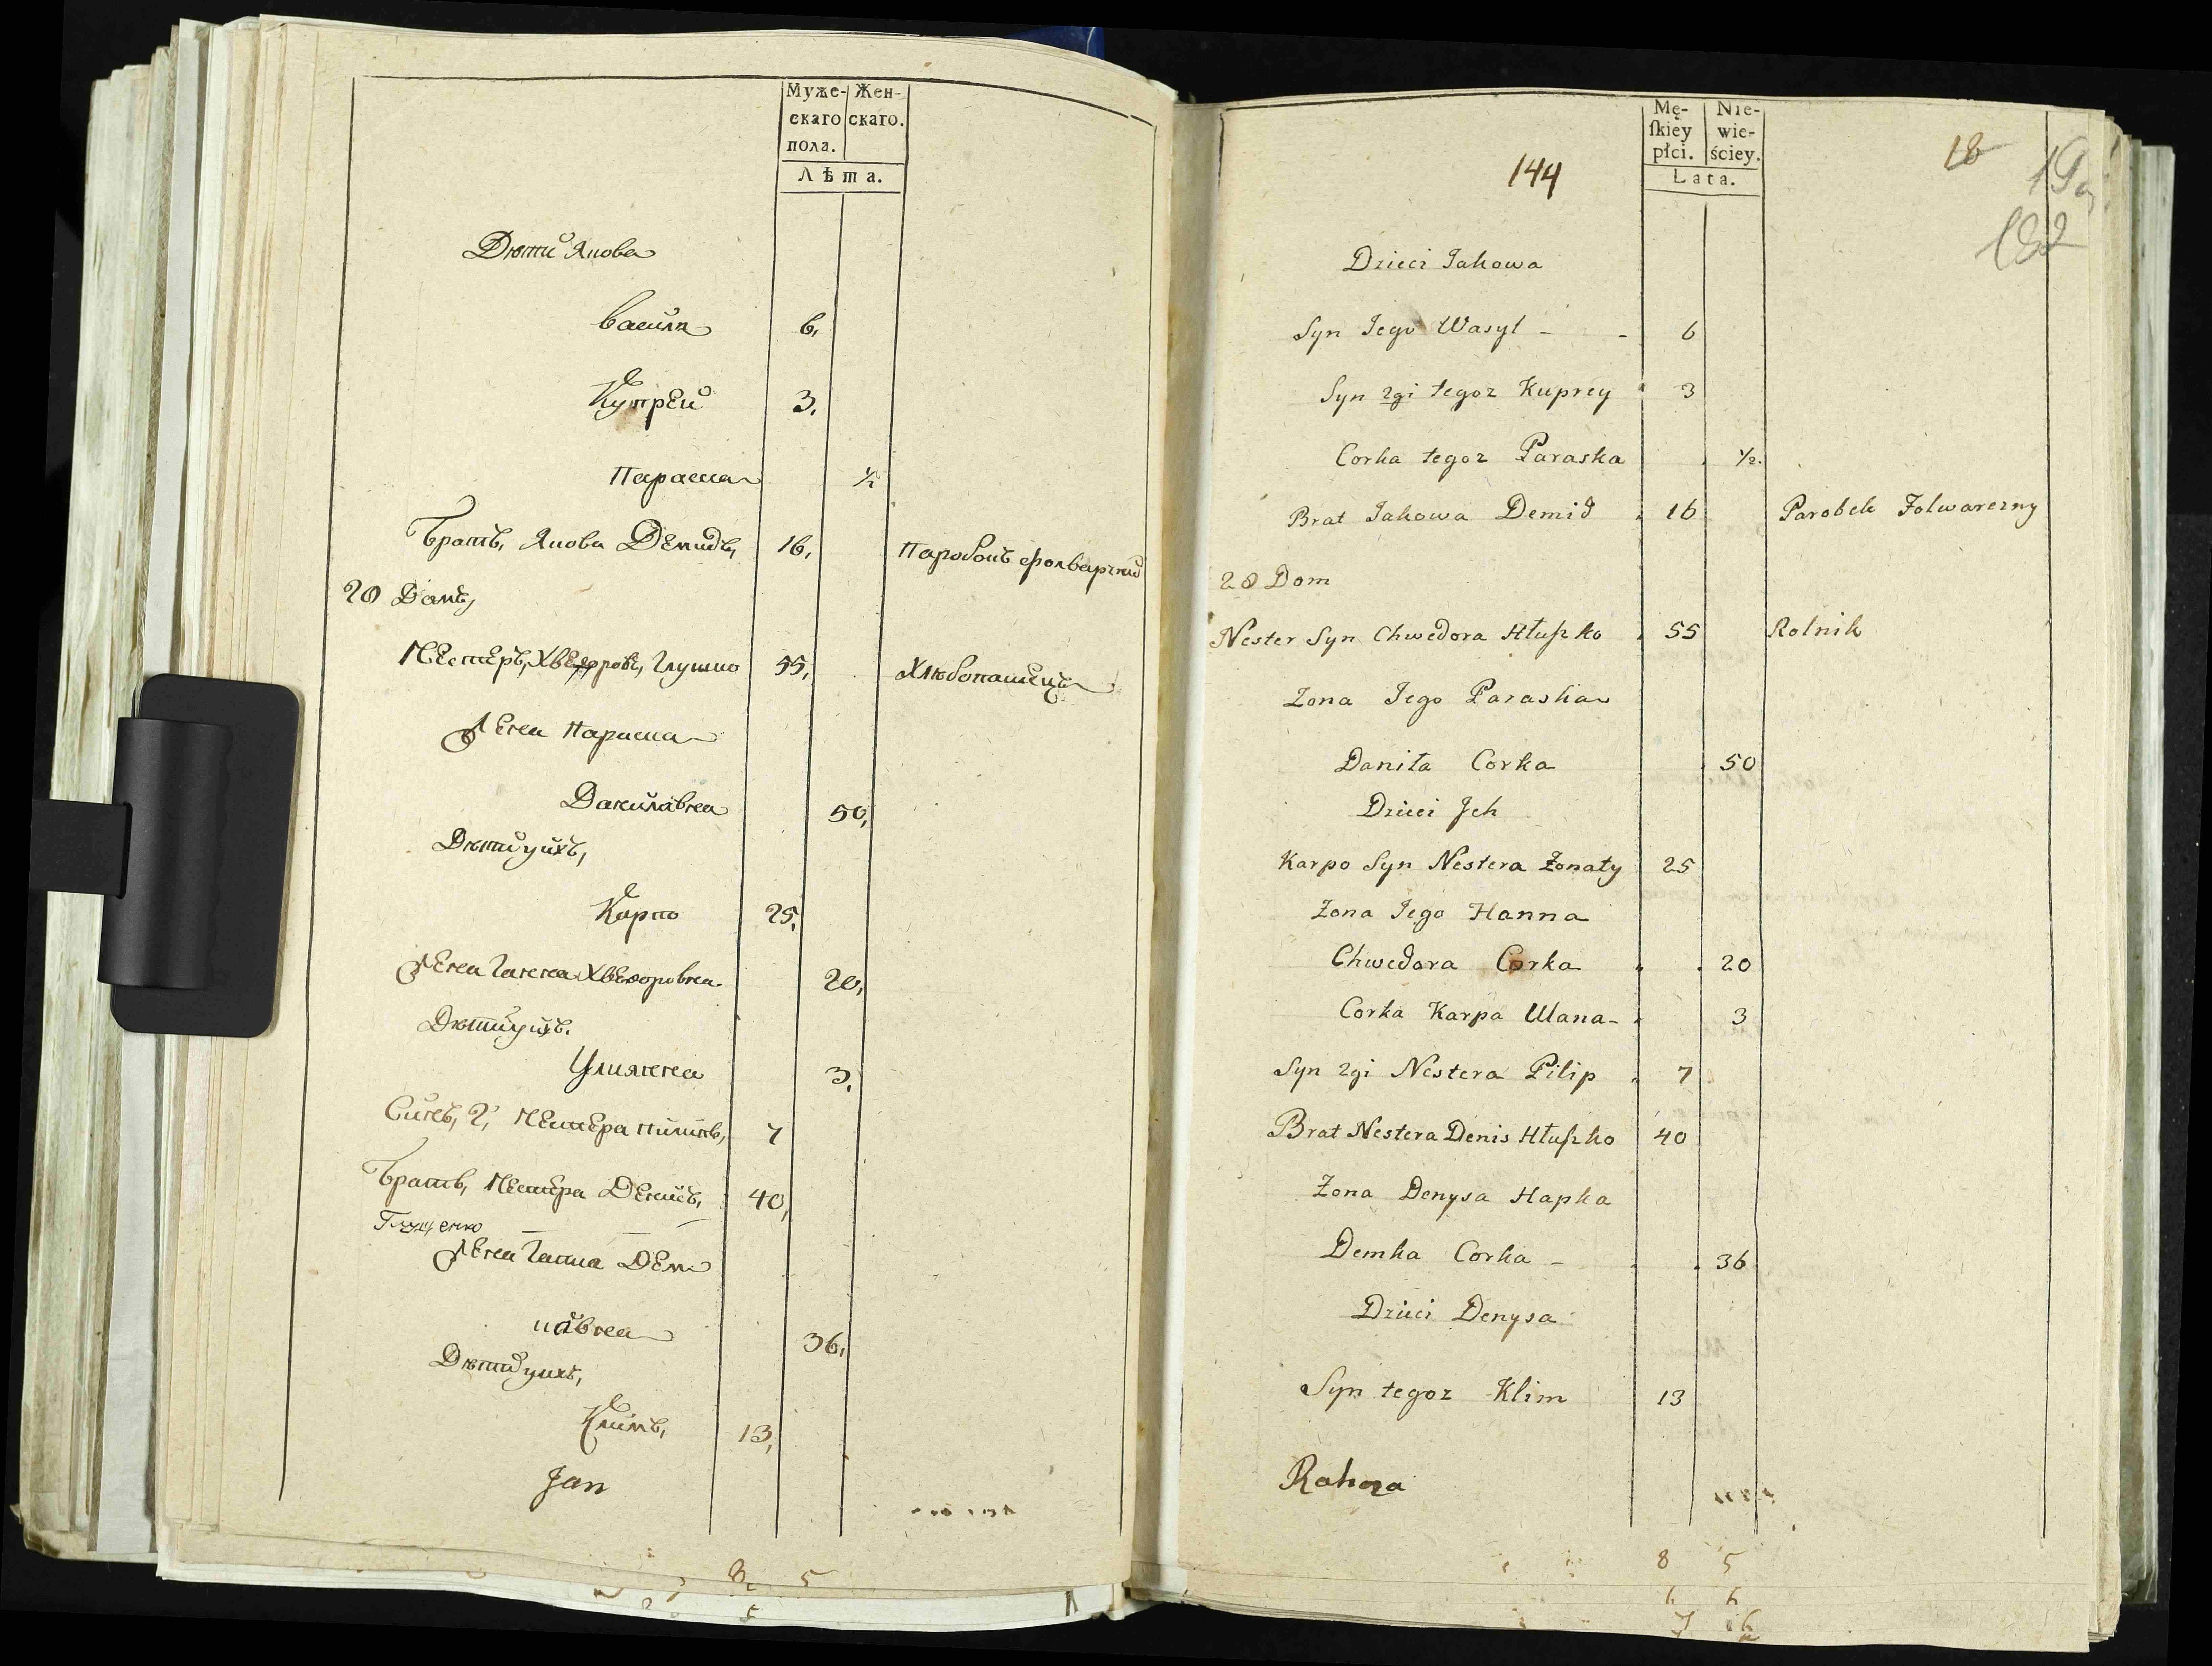 Муже- Жен-
скаго скаго.
пола.
Лѣта.
Дѣти Якова
Василь 6,
Купрей 3,
Параска ½
Братъ, Якова Демидъ, 16, Паробокъ фольварчний
20 Домъ,
Нестеръ, Хведоровъ, Глушко 55, Хлѣбопашецъ
Жена Параска
Данилавна 50,
Дѣти ихъ,
Карпо 25,
Жена Ганна Хведоровна 20,
Дѣти ихъ.
Улиянна 3,
Синъ, 2, Нестера Пилипъ, 7
Братъ, Нестера Денисъ, 40,
Глущенко
Жена Гапка Дем
кавна 36,
Дѣти ихъ,
Климъ, 13,
Jan
8 5
Mę- Nie-
ſkiey wie-
płci. ściey.
Lata.
144
18
182
Dzieci Jakowa
Syn Jego Wasyl - - 6
Syn 2gi tegoz Kuprey 3
Corka tegoz Paraska ½.
Brat Jakowa Demid 16 Parobek Folwarczny
20 Dom
Nester Syn Chwedora Hłuszko 55 Rolnik
Zona Jego Paraska
Daniła Corka 50
Dzieci Jch
Karpo Syn Nestera Zonaty 25
Zona Jego Hanna
Chwedora Corka 20
Corka Karpa Ulana - 3
Syn 2gi Nestera Pilip 7
Brat Nestera Denis Hłuszko 40
Zona Denysa Hapka
Demka Corka - 36
Dzieci Denysa
Syn tegoz Klim 13
Rahoza
8 5
6 6
7 6